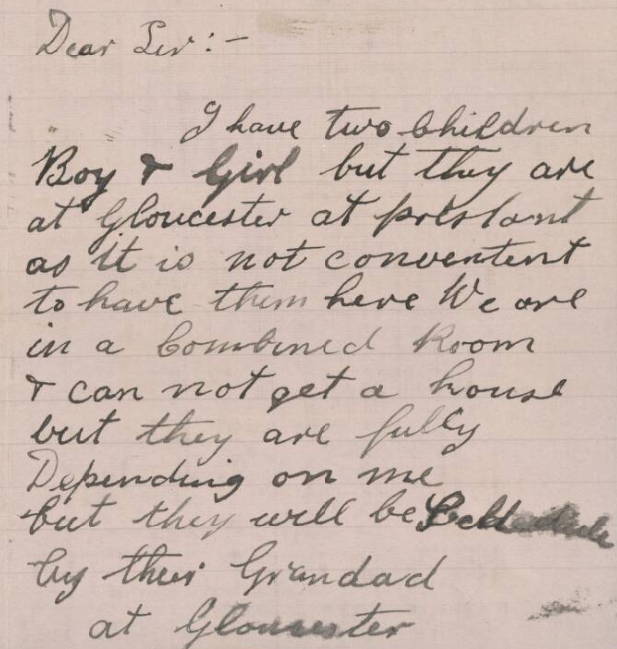 Dear Sir :-
I have two children
Boy & Girl but they are
at Gloucester at preslant
as it is not conventent
to have them here We are
in a Combined Room
& can not get a house
but they are fully
Depending on me
but they will be
by their Grandad
at Gloucester